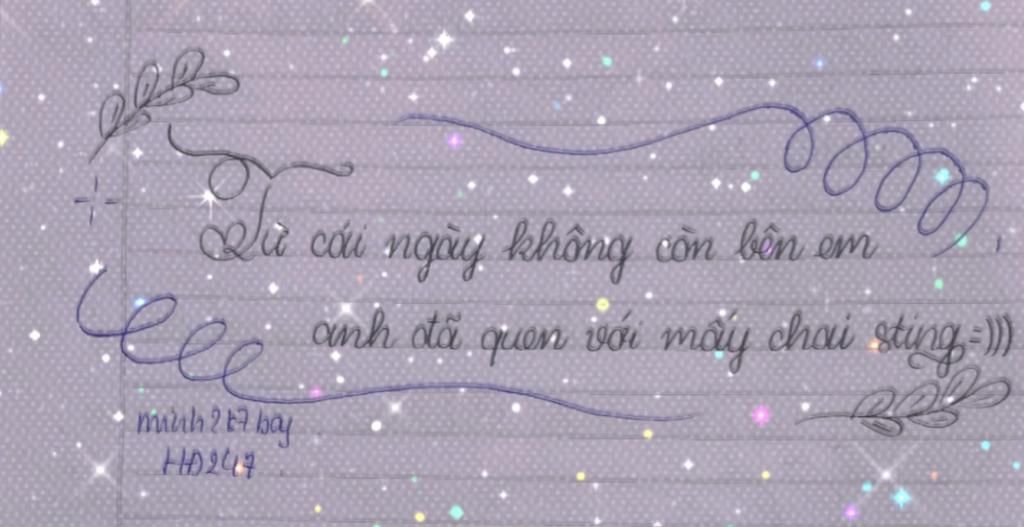 Từ cái ngày không còn bên em
anh đã quen với mấy chai sting=)))
minh2k7 boy
HD247